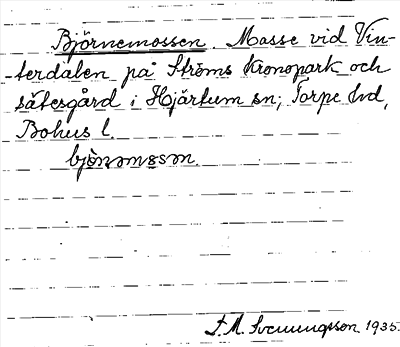 Björnemossen. Mosse vid Vin-
-terdalen på Ströms Kronopark och
sätesgård i Hjärtum sn; Torpe hd,
Bohus l.
bjönomossn.
F. M. Svenungsson 1935.